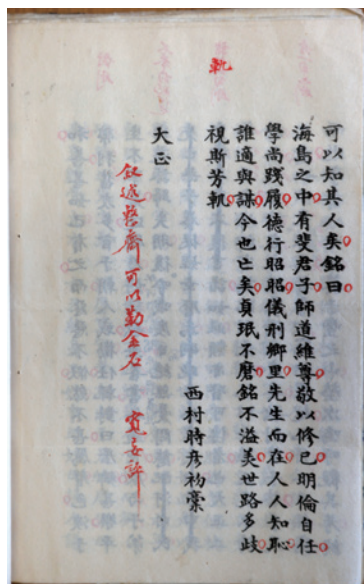 可以知其人矣銘曰
海島之中有斐君子師道維尊敬以修己明倫自任
學尚踐履德行昭昭儀刑鄉里先生而在人人知恥
誰適與謀今也亡矣貞珉不磨銘不溢美世路多歧
視斯芳軌
軌
西村時彥初稾
大正
敘述整齊可以勒金石 寬妄評